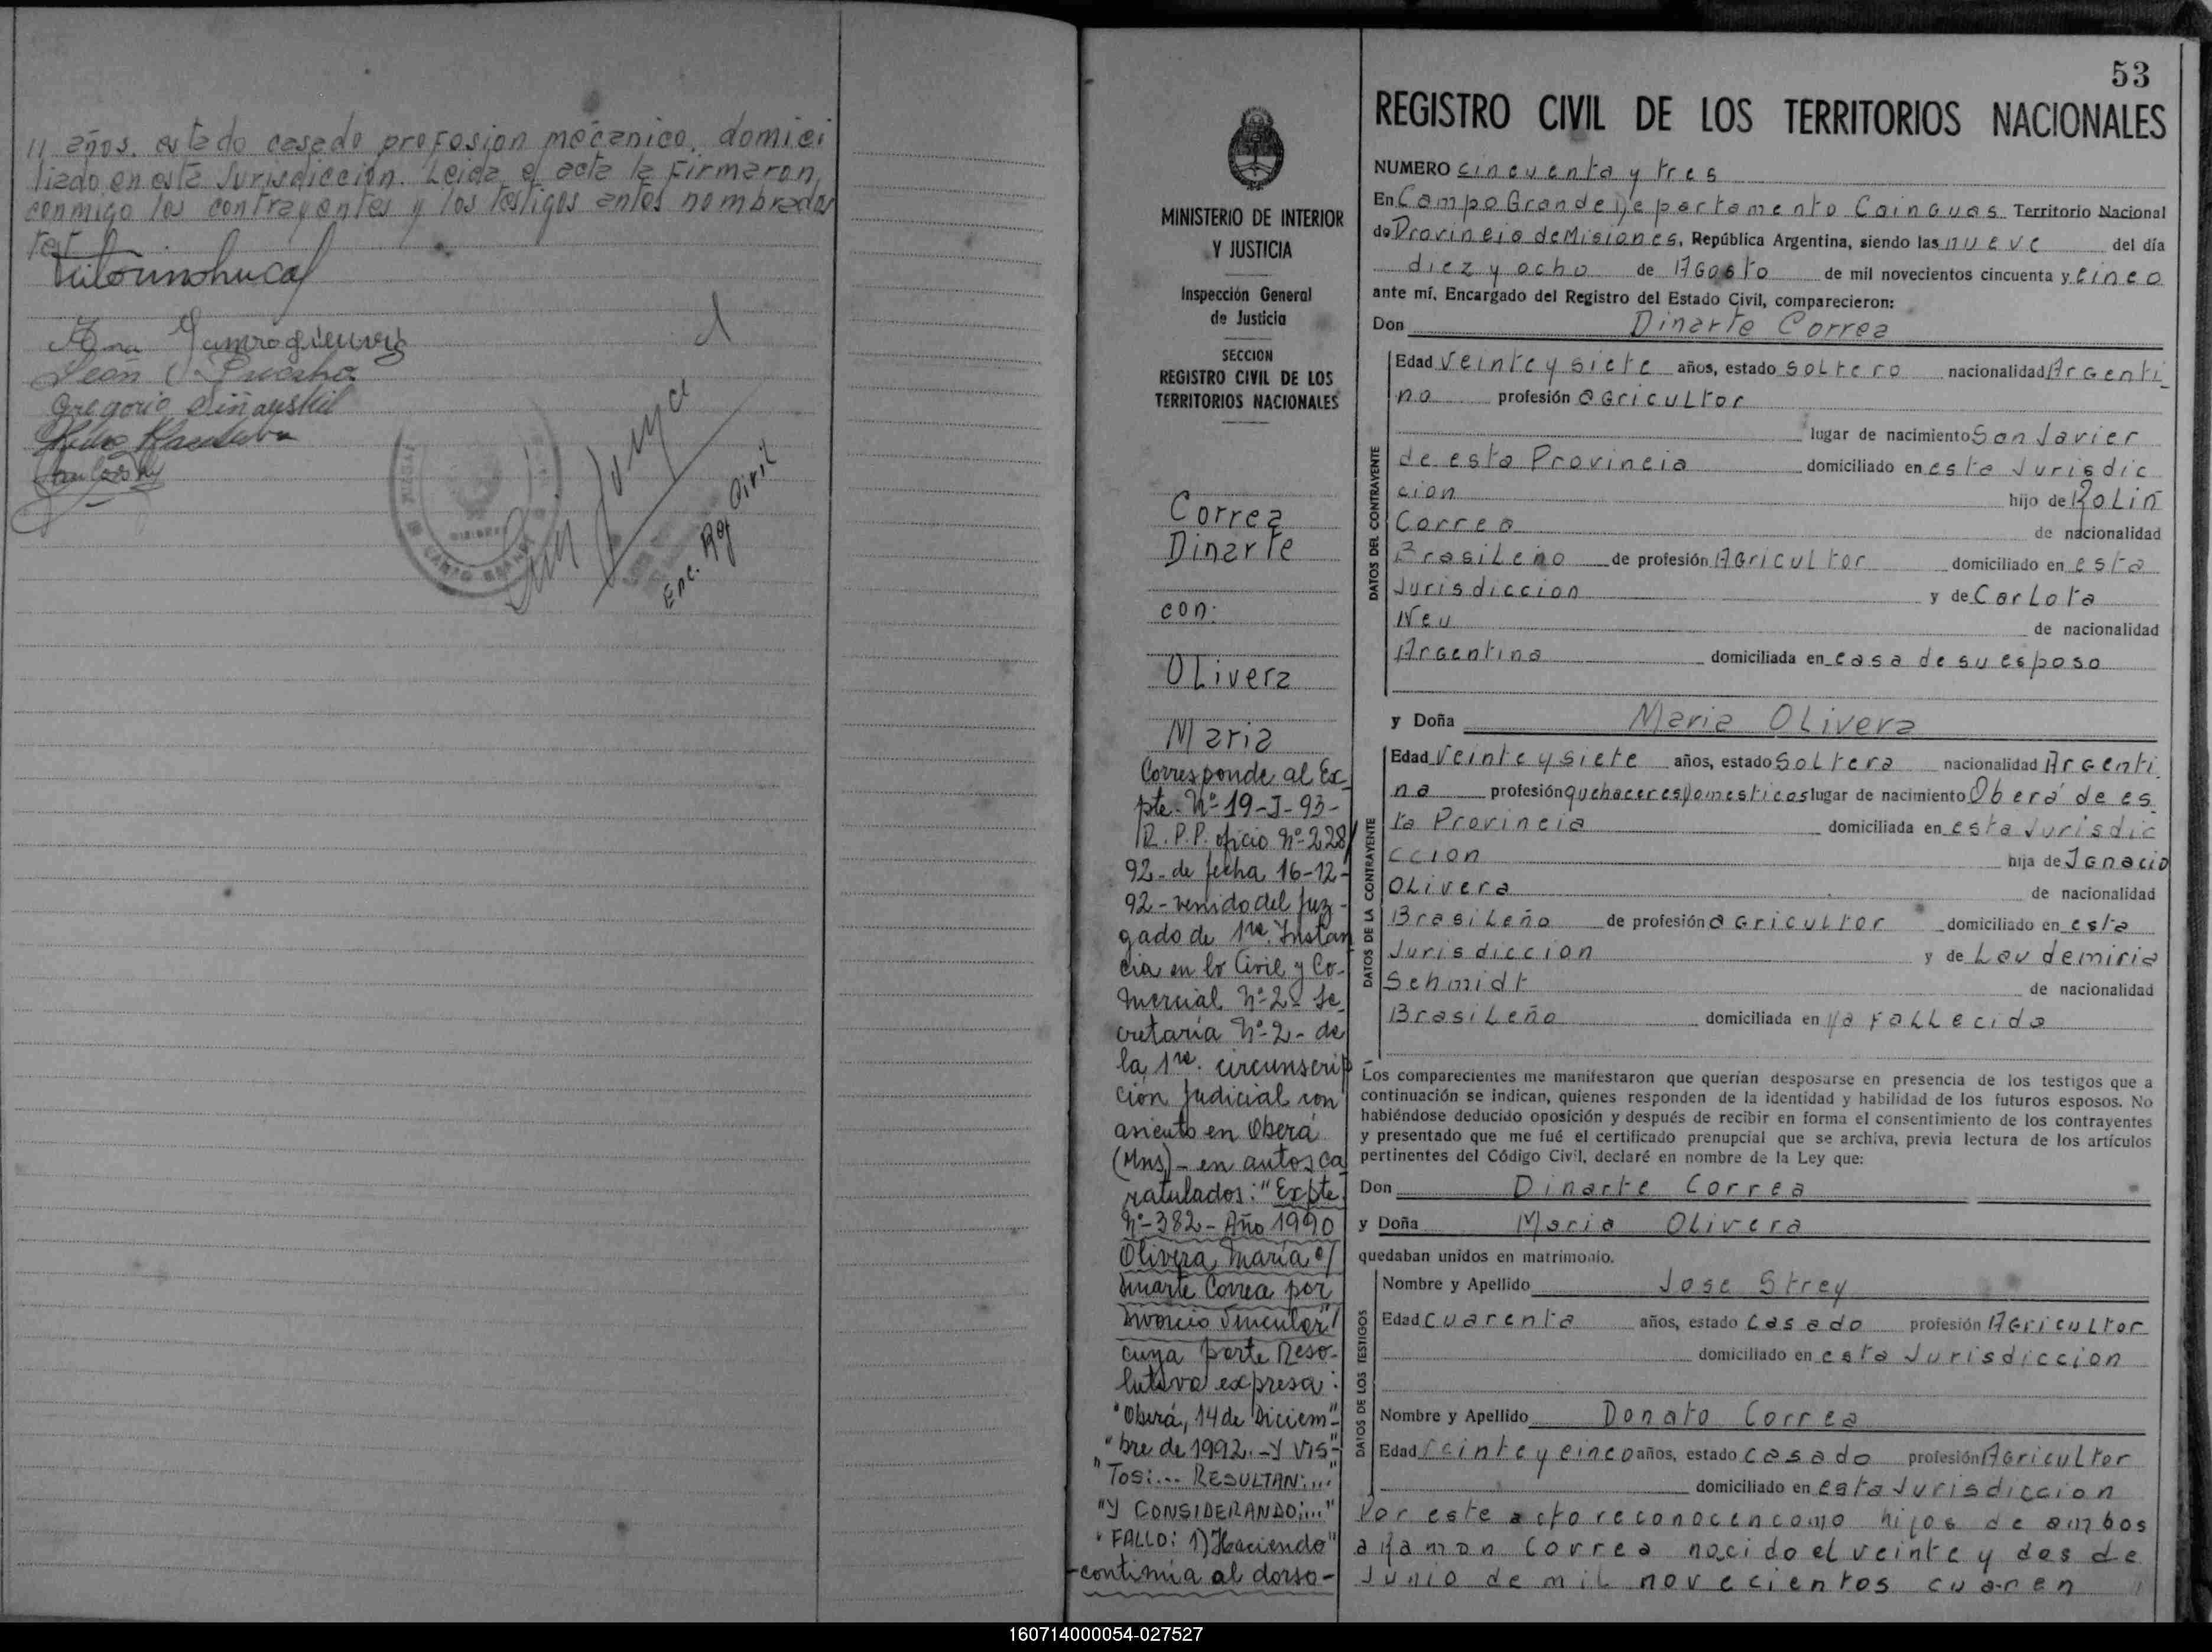 11 años. estado casado profesion mecanico, domici
liado en esta Jurisdiccion. Leida el acta la firmaron,
conmigo los contrayentes y los testigos antes nombrados
Ana
León
Gregorio
CAMPO GRANDE
Enc. Reg Civil
MINISTERIO DE INTERIOR
Y JUSTICIA
Inspección General
de Justicia
SECCION
REGISTRO CIVIL DE LOS
TERRITORIOS NACIONALES
Correa
Dinarte
con:
Olivera
Maria
Corresponde al Ex-
pte. Nº 19-J-93-
R.P.P. oficio Nº 228/
92- de fecha 16-12-
92- venido del Juz-
gado de 1ra. Instan
cia en lo Civil y Co-
mercial Nº 2- Se
cretaría Nº 2- de
la 1ra. circunscrip
ción Judicial con
asiento en Oberá
(Mns)- en autos ca
ratulados: "Expte.
Nº-382- Año 1990
Olivera, María c/
Dinarte Correa por
Divorcio Vincular"/
cuya parte Reso-
lutiva expresa:
"Oberá, 14 de Diciem"-
"bre de 1992.-Y VIS"-
"Tos:... RESULTAN:..."
"Y CONSIDERANDO:..."
"FALLO: 1) Haciendo"
-continúa al dorso-
53
REGISTRO CIVIL DE LOS TERRITORIOS NACIONALES
NUMERO cincuenta y tres
En Campo Grande Departamento Cainguas Territorio Nacional
de Provincia de Misiones, República Argentina, siendo las nueve del día
diez y ocho de Agosto de mil novecientos cincuenta y cinco
ante mí, Encargado del Registro del Estado Civil, comparecieron:
Don Dinarte Correa
DATOS DEL CONTRAYENTE
Edad Veinte y siete años, estado soltero nacionalidad Argenti
no profesión agricultor
lugar de nacimiento San Javier
de esta Provincia domiciliado en esta Jurisdic
cion hijo de Rolin
Correa de nacionalidad
Brasileño de profesión Agricultor domiciliado en esta
Jurisdiccion y de Carlota
Neu de nacionalidad
Argentina domiciliada en casa de su esposo
y Doña Maria Olivera
DATOS DE LA CONTRAYENTE
Edad Veinte y siete años, estado Soltera nacionalidad Argenti
na profesión quehaceres Domesticos lugar de nacimiento Oberá de es
ta Provincia domiciliada en esta Jurisdic
ccion hija de Ignacio
Olivera de nacionalidad
Brasileño de profesión agricultor domiciliado en esta
Jurisdiccion y de Laudemiria
Schmidt de nacionalidad
Brasileño domiciliada en ya fallecida
Los comparecientes me manifestaron que querían desposarse en presencia de los testigos que a
continuación se indican, quienes responden de la identidad y habilidad de los futuros esposos. No
habiéndose deducido oposición y después de recibir en forma el consentimiento de los contrayentes
y presentado que me fué el certificado prenupcial que se archiva, previa lectura de los artículos
pertinentes del Código Civil, declaré en nombre de la Ley que:
Don Dinarte Correa
y Doña Maria Olivera
quedaban unidos en matrimonio.
DATOS DE LOS TESTIGOS
Nombre y Apellido Jose Strey
Edad cuarenta años, estado casado profesión Agricultor
domiciliado en esta Jurisdiccion
Nombre y Apellido Donato Correa
Edad veinte y cinco años, estado casado profesión Agricultor
domiciliado en esta Jurisdiccion
Por este acto reconocen como hijos de ambos
a Ramon Correa nacido el veinte y dos de
Junio de mil novecientos cuaren
160714000054-027527